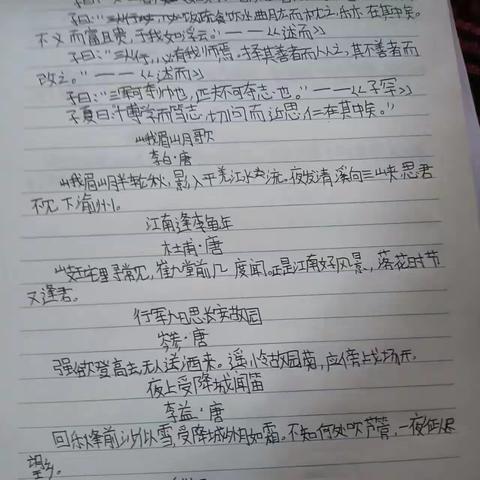 子曰："饭疏食饮水，曲肱而枕之，乐亦在其中矣。
不义而富且贵，于我如浮云。"——《述而》
子曰："三人行，必有我师焉，择其善者而从之，其不善者而
改之。"——《述而》
子曰："三军可夺帅也，匹夫不可夺志也。"——《子罕》
子夏曰："博学而笃志，切问而近思，仁在其中矣。"
峨眉山月歌
李白·唐
峨眉山月半轮秋，影入平羌江水流。夜发清溪向三峡，思君
不见下渝州。
江南逢李龟年
杜甫·唐
岐王宅里寻常见，崔九堂前几度闻。正是江南好风景，落花时节
又逢君。
行军九日思长安故园
岑参·唐
强欲登高去，无人送酒来。遥怜故园菊，应傍战场开。
夜上受降城闻笛
李益·唐
回乐烽前沙似雪，受降城外月如霜。不知何处吹芦管，一夜征人尽
望乡。